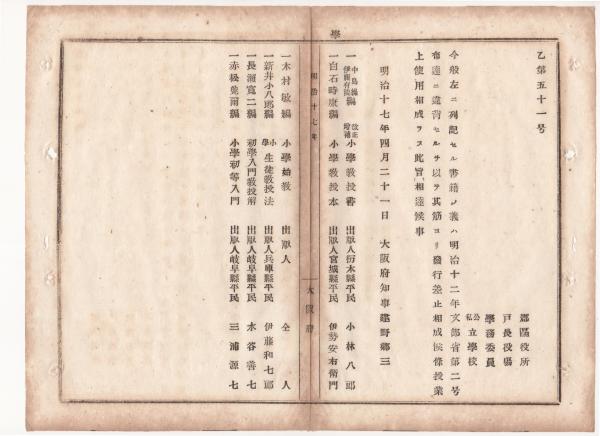 乙第五十一号
郡區役所
戸長役場
學務委員
公私立學校
今般左ニ列記セル書籍ノ義ハ明治十二年文部省第二号
布達ニ違背セルヲ以テ其筋ヨリ發行差止相成候條授業
上使用相成ラス此旨相達候事
明治十七年四月二十一日 大阪府知事建野郷三
一 中島操 伊藤有隣編 改正増補小學教授書 出版人栃木縣平民 小林八郎
一白石時康編 小學教授本 出版人宮城縣平民 伊勢安右衛門
學
明治十七年
大阪府
一木村敏編 小學始教 出版人 仝人
一新井小八郎編 小學生徒教授法 出版人兵庫縣平民 伊藤和七郎
一長瀬寛二編 初學入門教授解 出版人岐阜縣平民 水谷善七
一赤松 爾編 小學初等入門 出版人岐阜縣平民 三浦源七